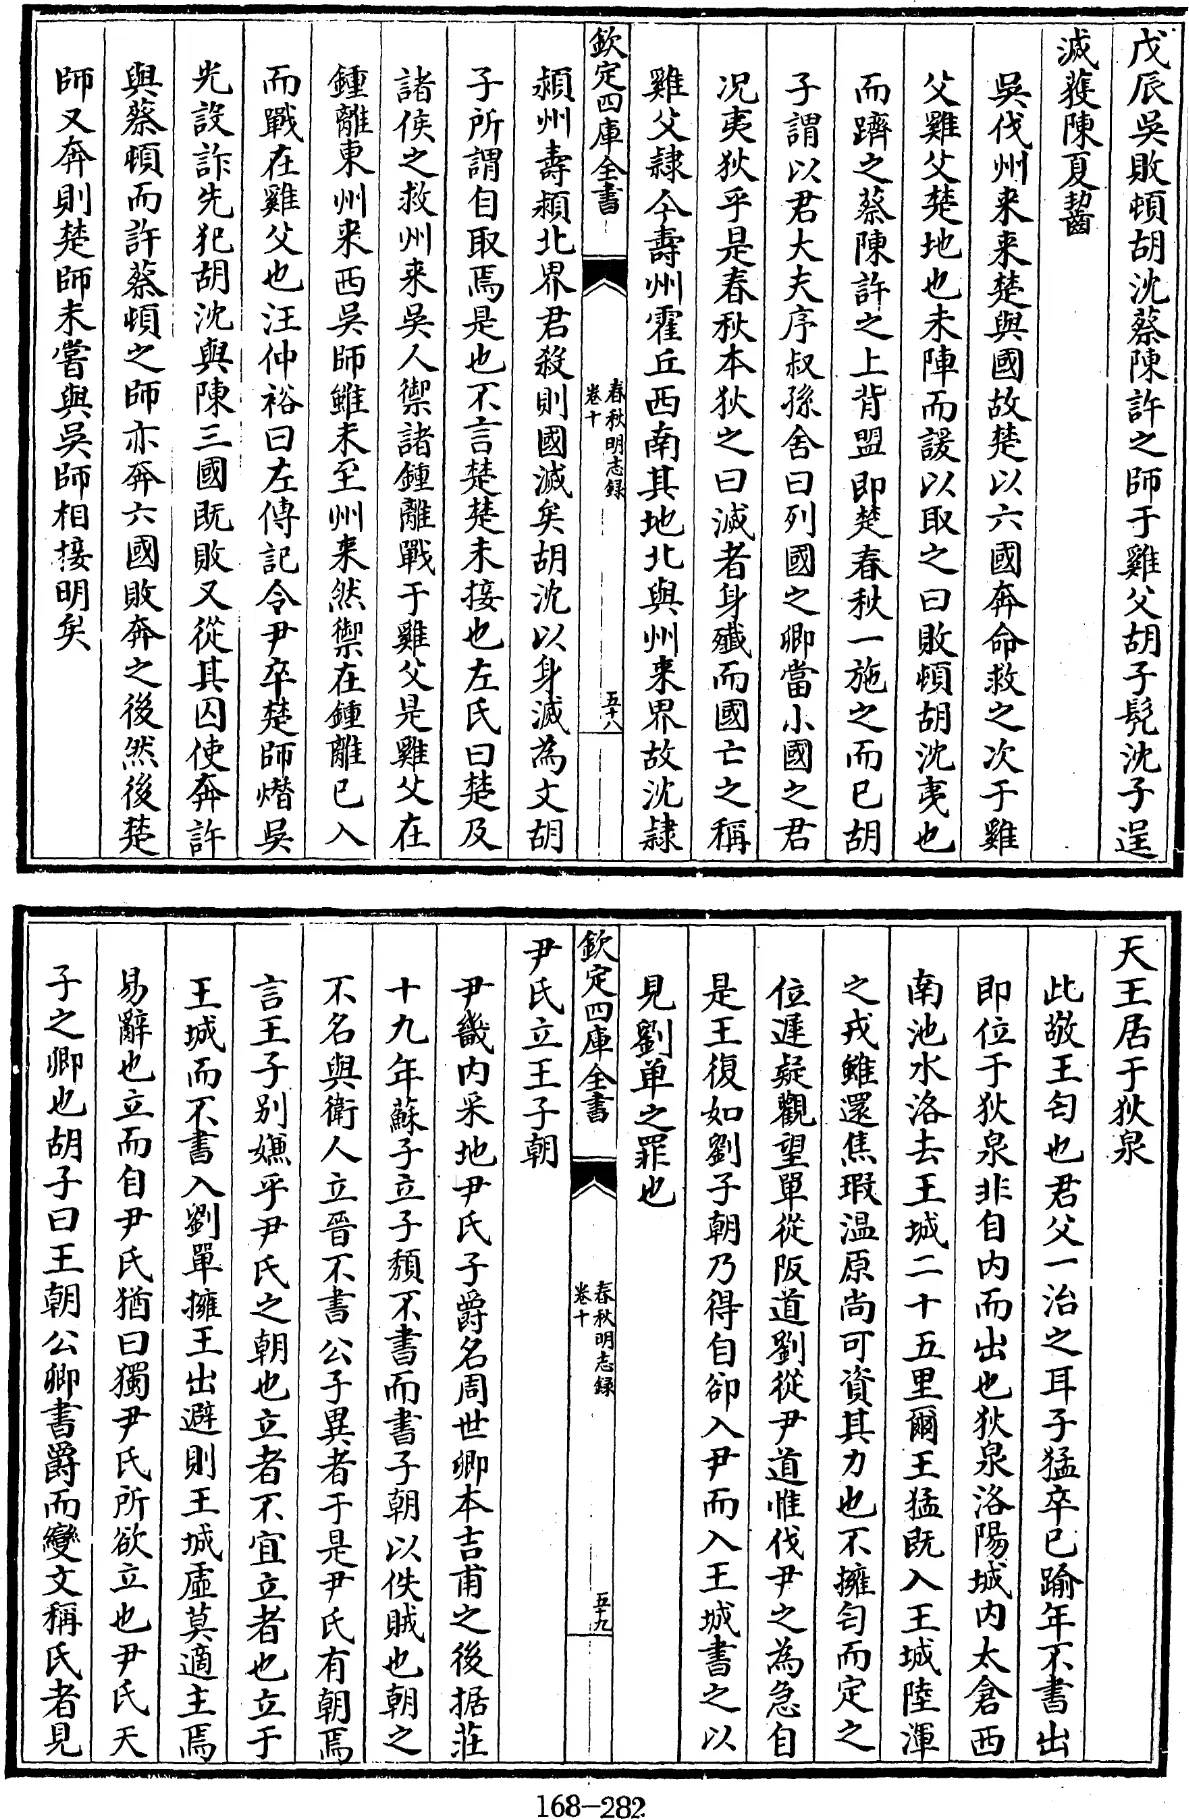 戊辰吳敗頓胡沈蔡陳許之師于雞父胡子髡沈子逞
滅獲陳夏齧
吳伐州来来楚與國故楚以六國奔命救之次于雞
父雞父楚地也未陣而諼以取之曰敗頓胡沈夷也
而躋之蔡陳許之上背盟即楚春秋一施之而已胡
子謂以君大夫序叔孫舍曰列國之卿當小國之君
况夷狄乎是春秋本狄之曰滅者身殲而國亡之稱
雞父隸今壽州霍丘西南其地北與州来界故沈隸
欽定四庫全書
春秋明志録
卷十
五十八
潁州壽潁北界君殺則國滅矣胡沈以身滅為文胡
子所謂自取焉是也不言楚楚未接也左氏曰楚及
諸侯之救州来吳人禦諸鍾離戰于雞父是雞父在
鍾離東州来西吳師雖未至州来然禦在鍾離已入
而戰在雞父也汪仲裕曰左傳記令尹卒楚師熸吳
光設詐先犯胡沈與陳三國既敗又從其囚使奔許
與蔡頓而許蔡頓之師亦奔六國敗奔之後然後楚
師又奔則楚師未嘗與吳師相接明矣
天王居于狄泉
此敬王匄也君父一治之耳子猛卒已踰年不書出
即位于狄泉非自内而出也狄泉洛陽城内太倉西
南池水洛去王城二十五里爾王猛既入王城陸渾
之戎雖還焦瑕温原尚可資其力也不擁匄而定之
位遲疑觀望單從阪道劉從尹道惟伐尹之為急自
是王復如劉子朝乃得自郤入尹而入王城書之以
見劉单之罪也
欽定四庫全書
春秋明志録
卷十
五十九
尹氏立王子朝
尹畿内采地尹氏子爵名周世卿本吉甫之後据莊
十九年蘇子立子頽不書而書子朝以佚賊也朝之
不名與衛人立晉不書公子異者于是尹氏有朝焉
言王子别嫌乎尹氏之朝也立者不宜立者也立于
王城而不書入劉單擁王出避則王城虚莫適主焉
易辭也立而自尹氏猶曰獨尹氏所欲立也尹氏天
子之卿也胡子曰王朝公卿書爵而變文稱氏者見
168-282